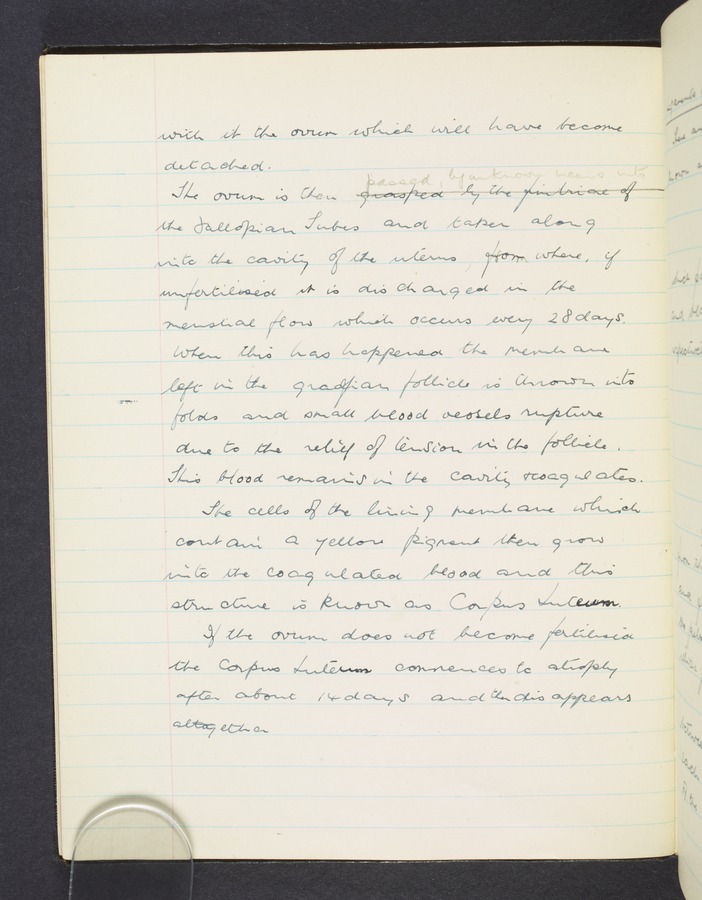 with it the ovum which will have become
detached.
passed, by unknown means into
The ovum is then grasped by the fimbriae of
the Fallopian Tubes and taken along
into the cavity of the uterus, from where, if
unfertilised it is discharged in the
menstrual flow which occurs every 28 days.
When this has happened the membrane
left in the graafian follicle is thrown into
folds and small blood vessels rupture
due to the relief of tension in the follicle.
This blood remains in the cavity & coagulates.
The cells of the lining membrane which
contain a yellow pigment then grow
into the coagulated blood and this
structure is known as Corpus Luteum.
If the ovum does not become fertilised
the Corpus Luteum commences to atrophy
after about 14 days and then disappears
altogether